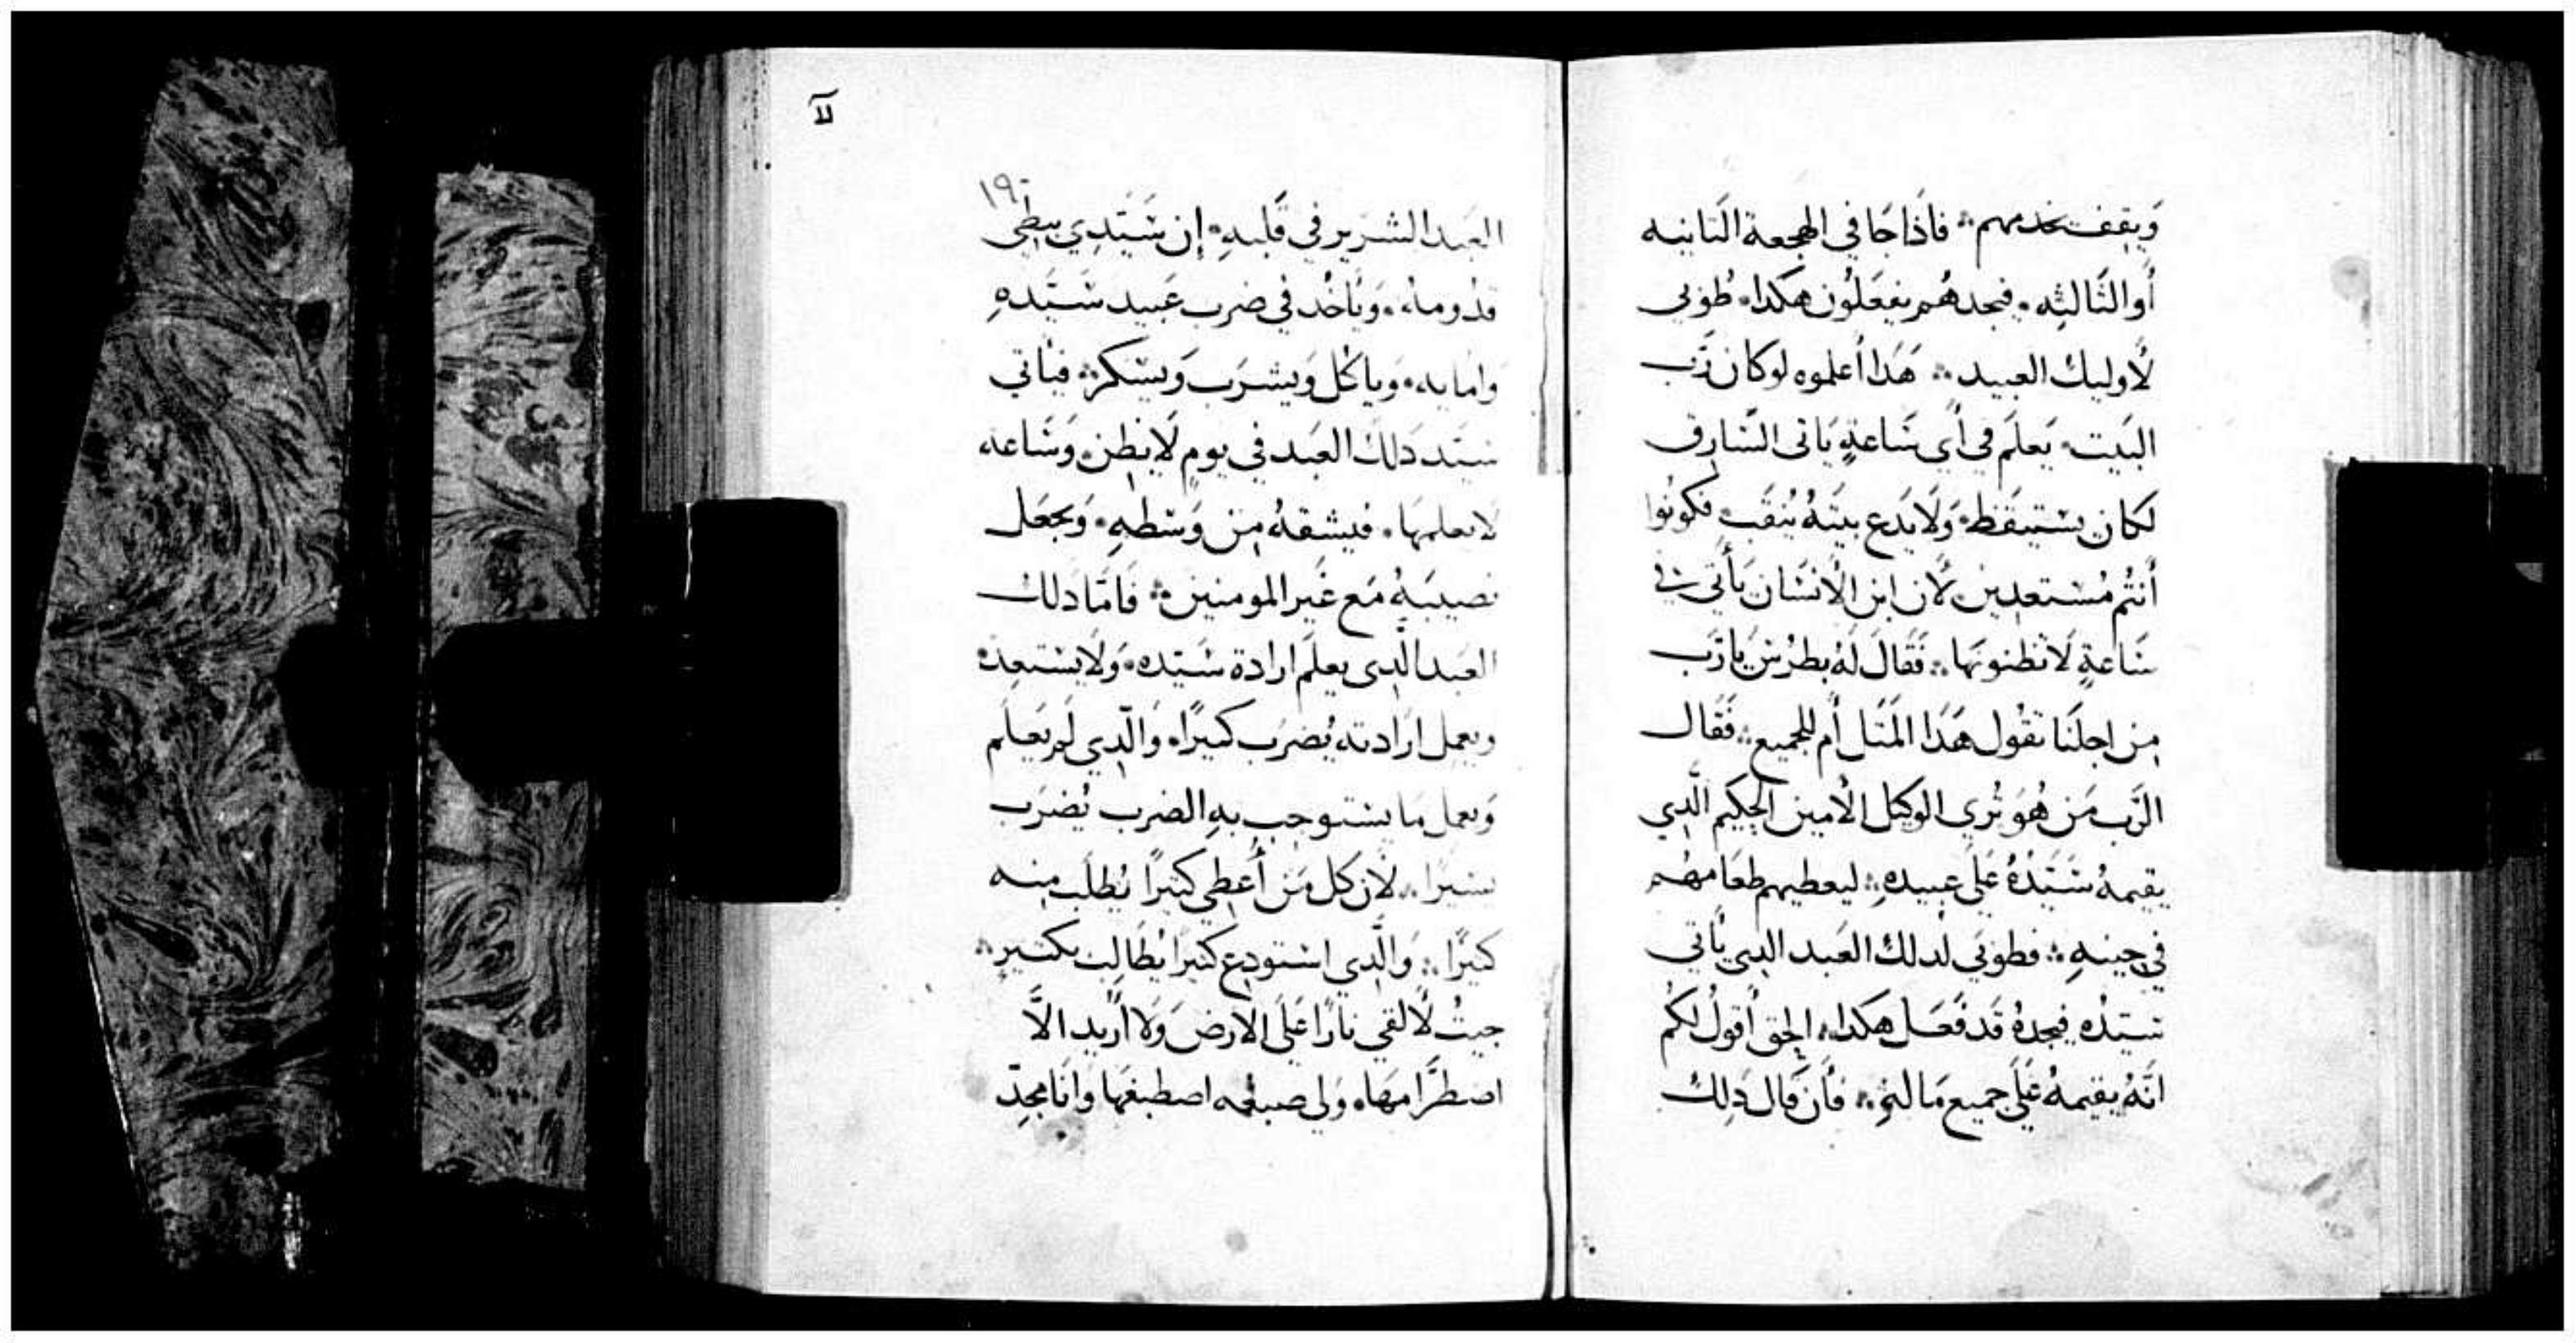 وَيقِف يخدمهم ܀ فاَذا جَا في الهجعة الثانيه
أَو الثَالثِه ܂ فيجدهُم يفعَلوُن هكدا ܂ طُوبي
لأوليك العبيد ܀ هَدَا أعلموه لو كان رَب
البَيت يَعلَم في أي سَاعةٍ يَاتى السَارق
لكان يستيقَظ ܂ وَلَا يَدَع بيتَهُ يُنقَب ܂ فكوُنوُا
أنتُم مُستعدين لأن ابن الأنسَان يَأتي في
سَاعةٍ لَا تظنونهَا ܀ فَقَال لَهُ بطرُس يَا رَب
مِن اجلنَا تقُول هَدَا المَثَل أم للجميع ܀ فَقَال
الرَب مَن هُوَ تُري الوكيل الأمين الحكيم الَّدِي
يقيمهُ سَيَدُهُ عَلي عبيدهِ ܀ ليعطيهم طعَامهُم
في حِينهِ ܀ فطوبَي لدلك العَبد الدِي يَأتي
سَيّدُه فيجدهُ قَد فَعَل هكدا ܂ الحق أقولُ لكُم
انَّهُ يقيمهُ عَلَي جميع مَا لهُ ܀ فأن قَال دَلِك
لا
١٩٠
العَبد الشرَير في قَلبهِ ܂ إن سَيّدِي يبطِي
قدُومهُ ܂ وَيَأخُد في ضرب عَبيد سَيَّدهِ
وامايه ܂ وَياكُل وَيشرَب وَيسَكر ܀ فيَأتي
سَيَد دَلكَ العَبد في يومٍ لَا يظِن ܂ وَسَاعه
لا يعلمهَا ܂ فيشقهُ مِن وَسَطهِ ܂ وَيجعَل
نصيبَهُ مَع غَير المومنين ܀ فَامَّا دَلك
العَبد الَّدِى يعلَم ارادة سَيّده ܂ وَلَا يستعِده
ويعمِل ارَادته يُضرَب كثيرًا ܂ وَالَّدِي لَم يَعلَم
وَيعمل مَا يستوجِب بهِ الضرب يُضرَب
يسيرًا ܀ لأن كل مَن أعطِي كثيرًا يُطلَب مِنه
كثيرًا ܀ وَالَّدِي استودِع كثيرًا يُطَالِب بكثيرٍ ܀
جيتُ لألقي نارًا عَلَي الأرض وَلَا أُريد الاَّ
اضطرَامهَا ܂ وَلى صبغه اصطبغهَا وَانَا مجِدّ